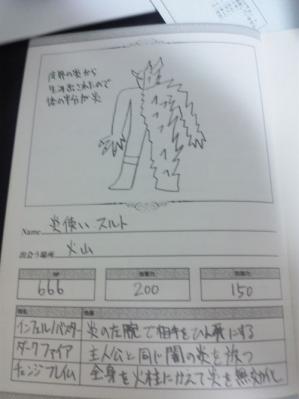 炎から
生み出されたので
体の半分が炎
Name 炎使い スルト
出会う場所 火山
HP
666
200
150
技名
効果
インフェルノバスター 炎の左腕で相手をひん死にする
ダークファイア 主人公と同じ闇の炎を放つ
チェンジフレイム 全身を火柱にかえて炎を無効化し